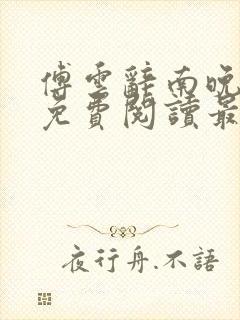 傅雲辭南晚
免費閱讀最
夜行舟.不語